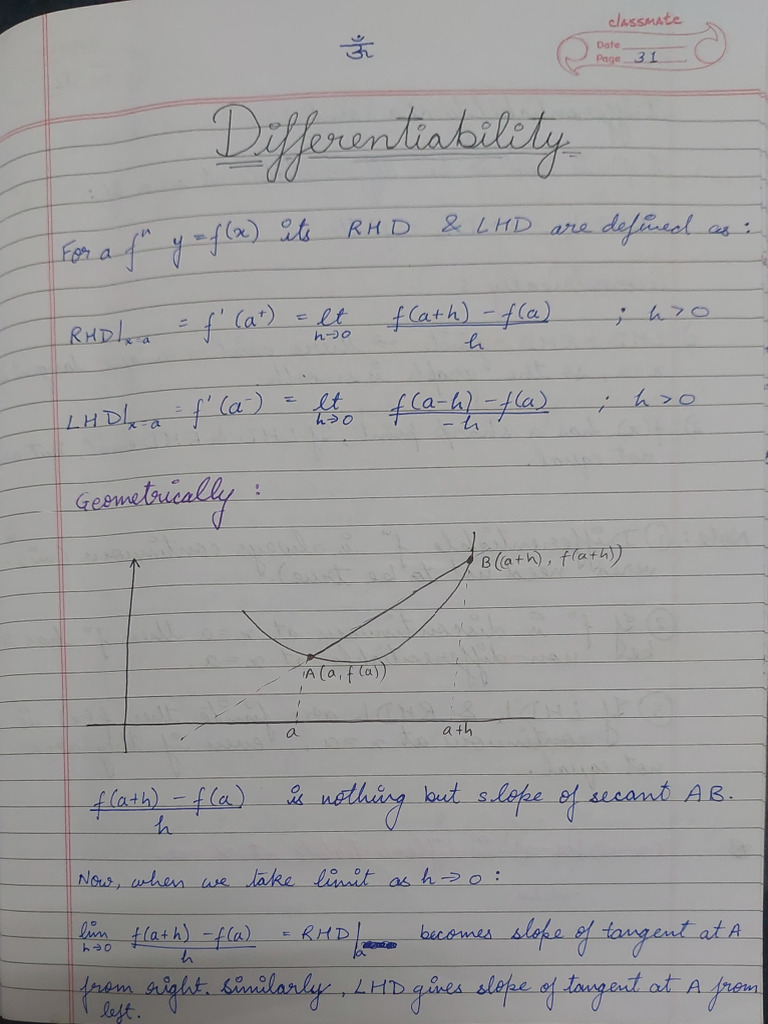 ॐ
classmate
Date
Page 31
Differentiability
For a fⁿ y = f(x) its RHD & LHD are defined as :
RHD|x-a = f'(a⁺) = lt h→0 f(a+h) - f(a) / h ; h>0
LHD|x-a = f'(a⁻) = lt h→0 f(a-h) - f(a) / -h ; h>0
Geometrically :
B((a+h), f(a+h))
A(a, f(a))
a a+h
f(a+h) - f(a) / h is nothing but slope of secant AB.
Now, when we take limit as h→0 :
lim h→0 f(a+h) - f(a) / h = RHD|a becomes slope of tangent at A
from right. Similarly, LHD gives slope of tangent at A from
left.